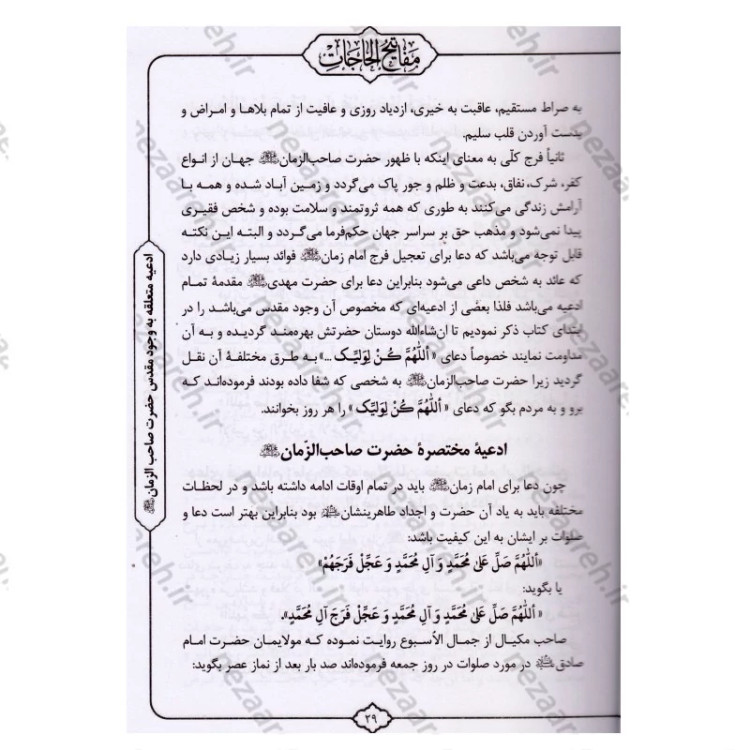 مفاتیح الحاجات
به صراط مستقیم، عاقبت به خیری، ازدیاد روزی و عافیت از تمام بلاها و امراض و
بدست آوردن قلب سلیم.
ثانیاً فرج کلّی به معنای اینکه با ظهور حضرت صاحب‌الزمان جهان از انواع
کفر، شرک، نفاق، بدعت و ظلم و جور پاک می‌گردد و زمین آباد شده و همه با
آرامش زندگی می‌کنند به طوری که همه ثروتمند و سلامت بوده و شخص فقیری
پیدا نمی‌شود و مذهب حق بر سراسر جهان حکم‌فرما می‌گردد و البته این نکته
قابل توجه می‌باشد که دعا برای تعجیل فرج امام زمان فوائد بسیار زیادی دارد
که عائد به شخص داعی می‌شود بنابراین دعا برای حضرت مهدی مقدمهٔ تمام
ادعیه می‌باشد فلذا بعضی از ادعیه‌ای که مخصوص آن وجود مقدس می‌باشد را در
ابتدای کتاب ذکر نمودیم تا ان‌شاءالله دوستان حضرتش بهره‌مند گردیده و به آن
مداومت نمایند خصوصاً دعای «أللّٰهُمَّ کُنْ لِوَلِیِّک ...» به طرق مختلفهٔ آن نقل
گردید زیرا حضرت صاحب‌الزمان به شخصی که شفا داده بودند فرموده‌اند که
برو و به مردم بگو که دعای «أللّٰهُمَّ کُنْ لِوَلِیِّک» را هر روز بخوانند.
ادعیهٔ مختصرهٔ حضرت صاحب‌الزّمان
چون دعا برای امام زمان باید در تمام اوقات ادامه داشته باشد و در لحظات
مختلفه باید به یاد آن حضرت و اجداد طاهرینشان بود بنابراین بهتر است دعا و
صلوات بر ایشان به این کیفیت باشد:
«أللّٰهُمَّ صَلِّ عَلیٰ مُحَمَّدٍ وَ آلِ مُحَمَّدٍ وَ عَجِّلْ فَرَجَهُمْ»
یا بگوید:
«أللّٰهُمَّ صَلِّ عَلیٰ مُحَمَّدٍ وَ آلِ مُحَمَّدٍ وَ عَجِّلْ فَرَجَ آلِ مُحَمَّدٍ».
صاحب مکیال از جمال الأسبوع روایت نموده که مولایمان حضرت امام
صادق در مورد صلوات در روز جمعه فرموده‌اند صد بار بعد از نماز عصر بگوید:
ادعیه متعلقه به وجود مقدس حضرت صاحب الزمان
۲۹
nezaareh.ir